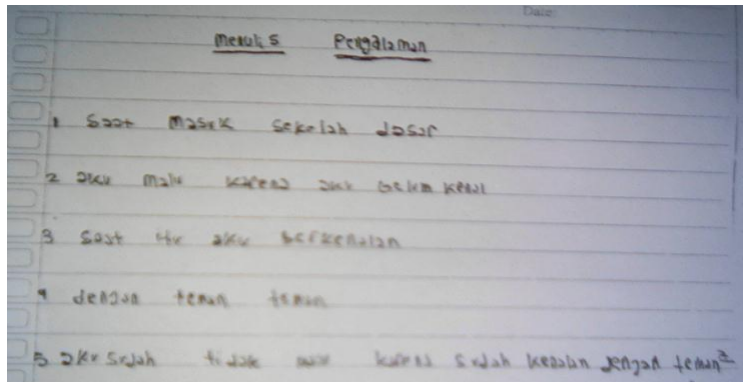 Date:
Menulis Pengalaman
1 Saat masuk sekolah dasar
2 aku malu karena aku belum kenal
3 saat itu aku berkenalan
4 dengan teman teman
5 aku sudah tidak malu karena sudah kenalan dengan teman²